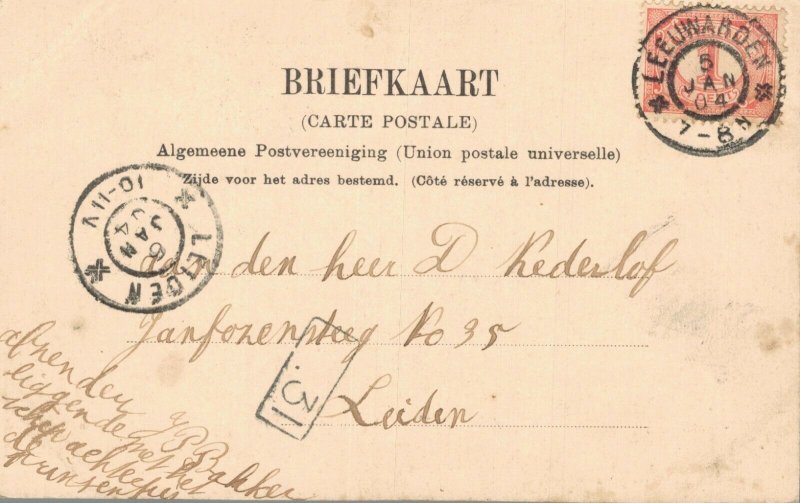 BRIEFKAART
(CARTE POSTALE)
Algemeene Postvereeniging (Union postale universelle)
Zijde voor het adres bestemd. (Côté réservé à l'adresse).
LEEUWARDEN
5
JAN
04
7-8 N
LEIDEN
6
JAN
04
10-11V
1
aan den heer D Rederlof
No 35
Leiden
31
afzender
J P Bakker
liggende met het
schip achter
de